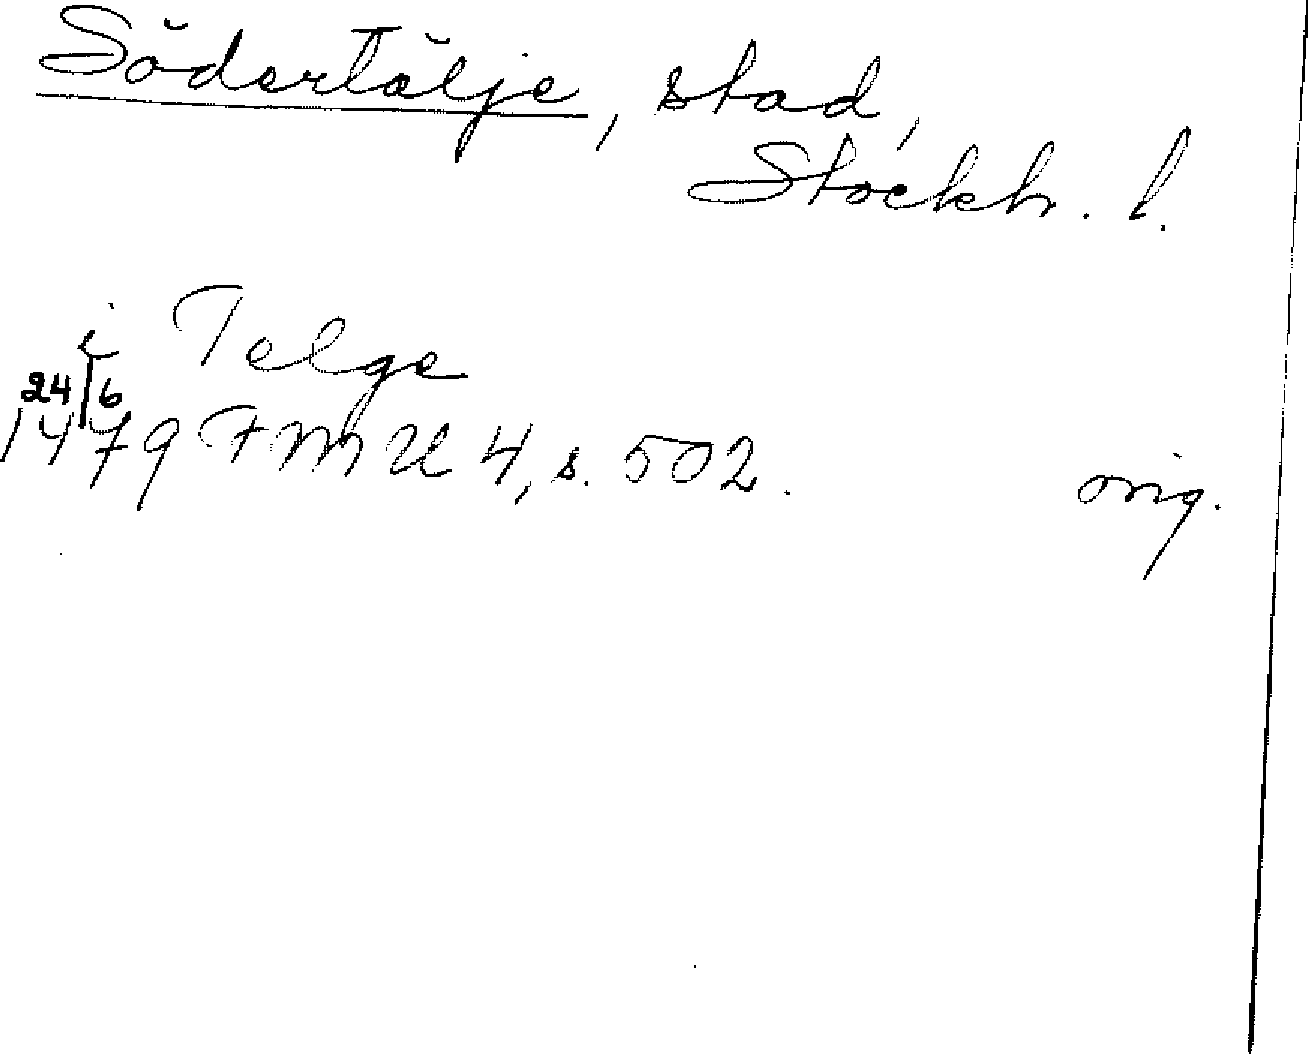 Södertälje, stad,
Stockh. l.
i Telge
24/6
1479 FMU 4, s. 502.
orig.